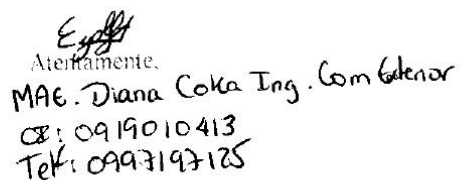 Atentamente,
MAE. Diana Coka Ing. Com Exterior
CI: 0919010413
Telf: 0997197125